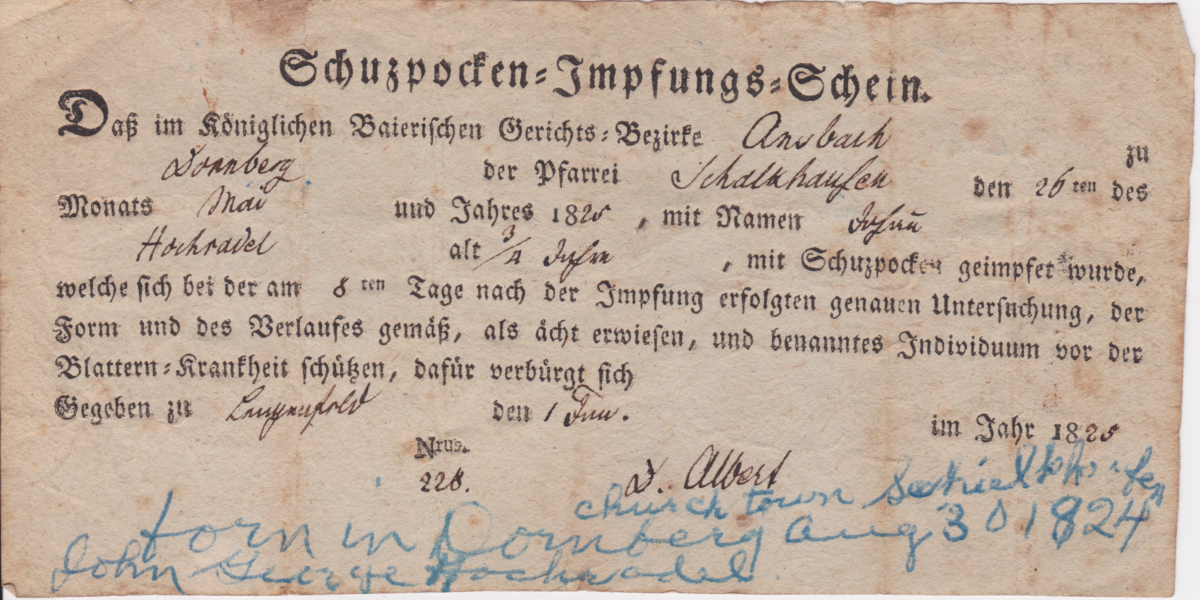 Schuzpocken-Impfungs-Schein.
Daß im Königlichen Baierischen Gerichts-Bezirke Ansbach zu
Dornberg der Pfarrei Schalkhausen den 26ten des
Monats Mai und Jahres 1825, mit Namen Johann
Hochradel alt 3/4 Jahre, mit Schuzpocken geimpfet wurde,
welche sich bei der am 8ten Tage nach der Impfung erfolgten genauen Untersuchung, der
Form und des Verlaufes gemäß, als ächt erwiesen, und benanntes Individuum vor der
Blattern-Krankheit schützen, dafür verbürgt sich
Gegeben zu den 1 Jun. im Jahr 1825
Nrus.
228. D. Albert
church town
born in Dornberg Aug 30 1824
John George Hochradel